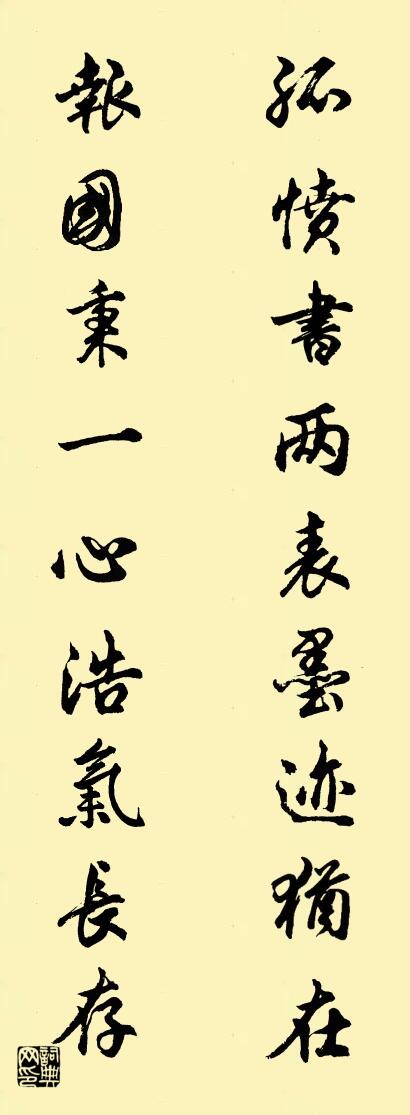 孤愤书两表墨迹犹在
報國秉一心浩氣長存
詞典网印